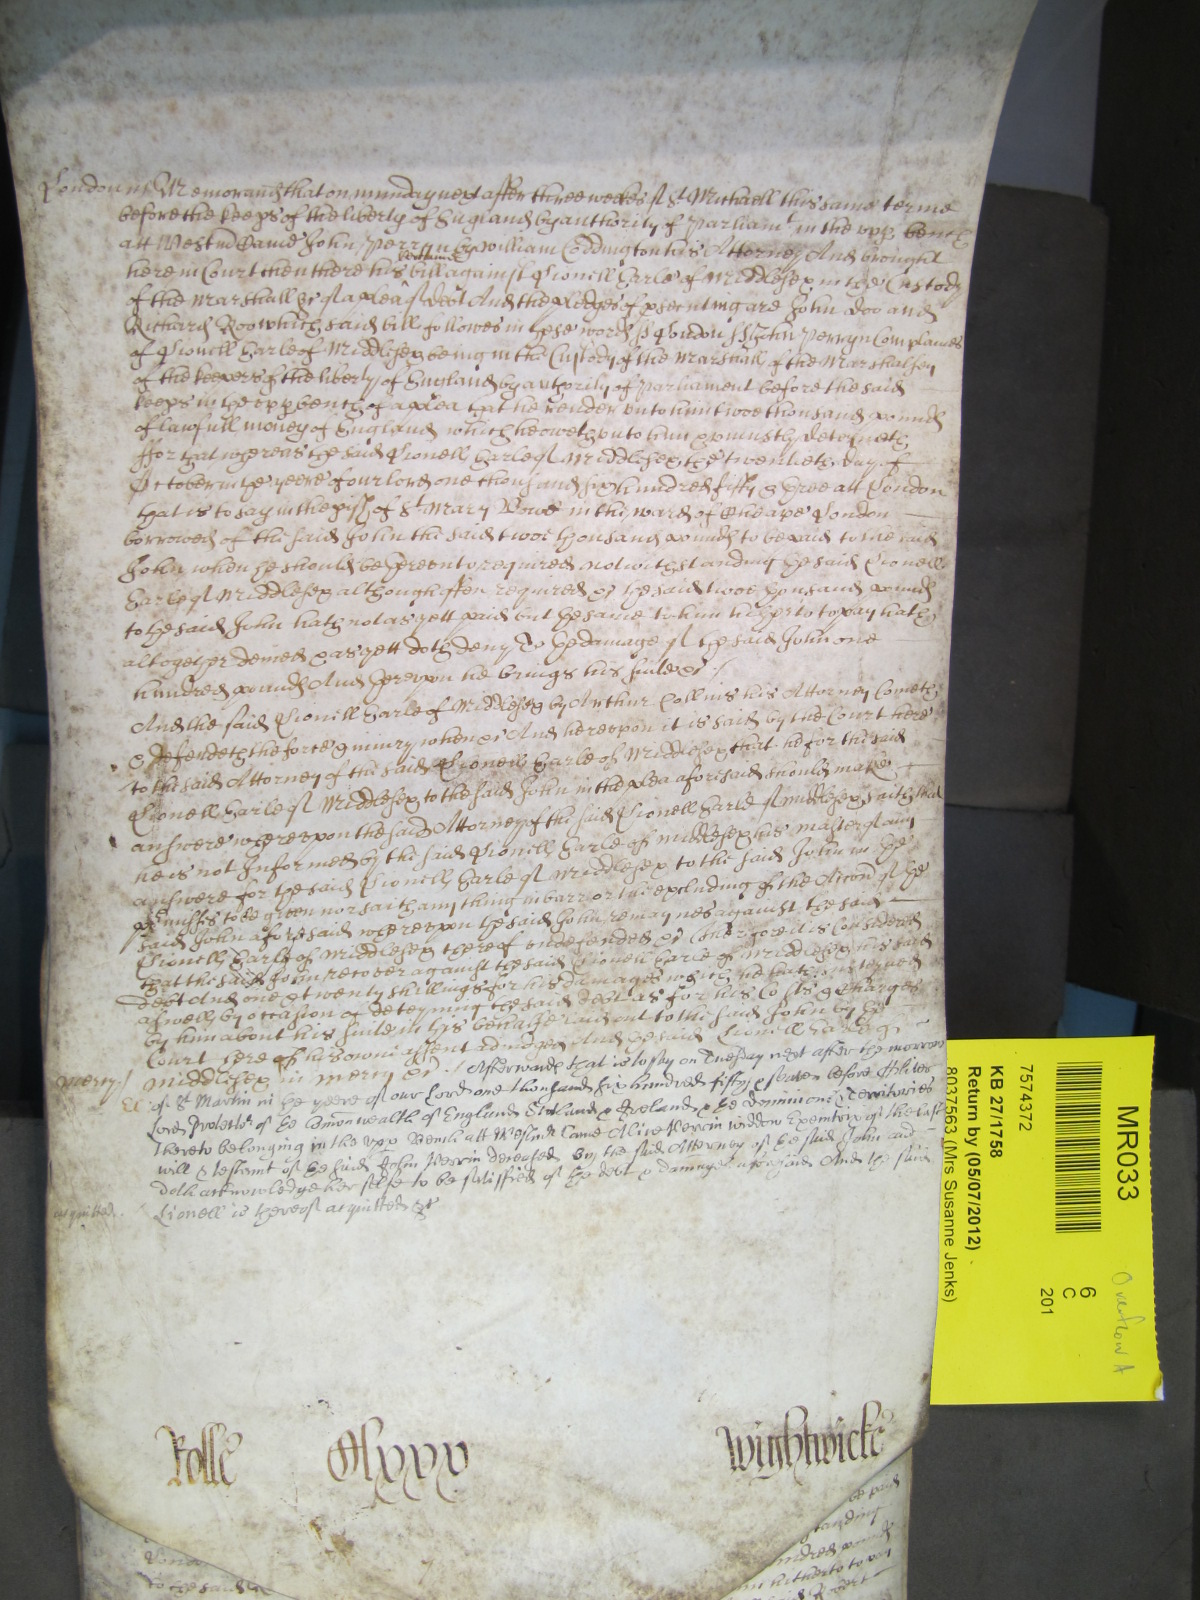 London ss Memorand that on munday next after three weekes of St Michaell this same terme
before the keeps of the liberty of England by authority of Parliamt in the upp bench
att Westm Came John Perryn by William Coddington his Attorney And brought
here in Court then there his bill against Lionell Earle of Middlesex in the Custody
of the Marshall &c of a plea of debt And the pledges of prsecuting are John Doo and
Richard Roo which said bill followes in these words ss London ss John Perryn Complaines
of Lionell Earle of Middlesex being in the Custody of the Marshall of the Marshalsey
of the keepers of the liberty of England by authority of Parliament before the said
keeps in the upp bench of a plea that he render unto him twoe thousand pounds
of lawfull money of England which he oweth unto him & uniustly deteyneth
ffor that whereas the said Lionell Earle of Middlesex the twentieth day of
October in the yeere of our lord one thousand six hundred fifty & three att London
that is to say in the pish of St Mary Bowe in the ward of Cheape London
borrowed of the said John the said twoe thousand pounds to be paid to the said
John when he should be thereunto required notwithstanding the said Lionell
Earle of Middlesex although often required &c the said twoe thousand pounds
to the said John hath not as yett paid but the same to him hitherto to pay hath
altogether denied & as yett doth deny To the damage of the said John one
hundred pounds And thereupon he brings his suite &c
And the said Lionell Earle of Middlesex by Arthur Collins his Attorney Cometh
& defendeth the force & iniury when &c And hereupon it is said by the Court here
to the said Attorney of the said Lionell Earle of Middlesex that he for the said
Lionell Earle of Middlesex to the said John in the plea aforesaid should make
answere whereupon the said Attorney of the said Lionell Earle of Middlesex saith that
he is not Informed by the said Lionell Earle of Middlesex his master of any
answere for the said Lionell Earle of Middlesex to the said John in the
pmisses to be given nor saith any thing in barr or the excluding of the Accon of the
said John aforesaid whereupon the said John remaynes against the said
Lionell Earle of Middlesex thereof undefended &c Therefore it is Considered
that the said John recover against the said Lionell Earle of Middlesex his said
debt And one & twenty shillings for his damages which he hath susteyned
aswell by occasion of deteyning the said debt as for his Costs & Charges
by him about his suite in this behalfe laid out to the said John by the
Court here of his owne assent adiudged And the said Lionell Earle of
mercy Middlesex in mercy &c Afterwards that is to say on Tuesday next after the morrow
of St Martin in the yeere of our Lord one thousand six hundred fifty & seaven before Oliver
Lord Protector of the Comonwealth of England Scotland & Ireland & the dominions & Territories
thereto belonging in the upp Bench att Westm Came Alice Perrin widdow Executrix of the last
will & testamt of the said John Perrin deceased By the said Attorney of the said John and
doth acknowledge her selfe to be satisfied of the debt & damages aforesaid And the said
acquitted Lionell is thereof acquitted &c
Rolle Clxxxv Wightwicke
be paid
standing
hundred pounds
him hitherto to pay
said Robert
to the said
MR033
Overflow A
6
C
201
7574372
KB 27/1758
Return by (05/07/2012)
8037563 (Mrs Susanne Jenks)